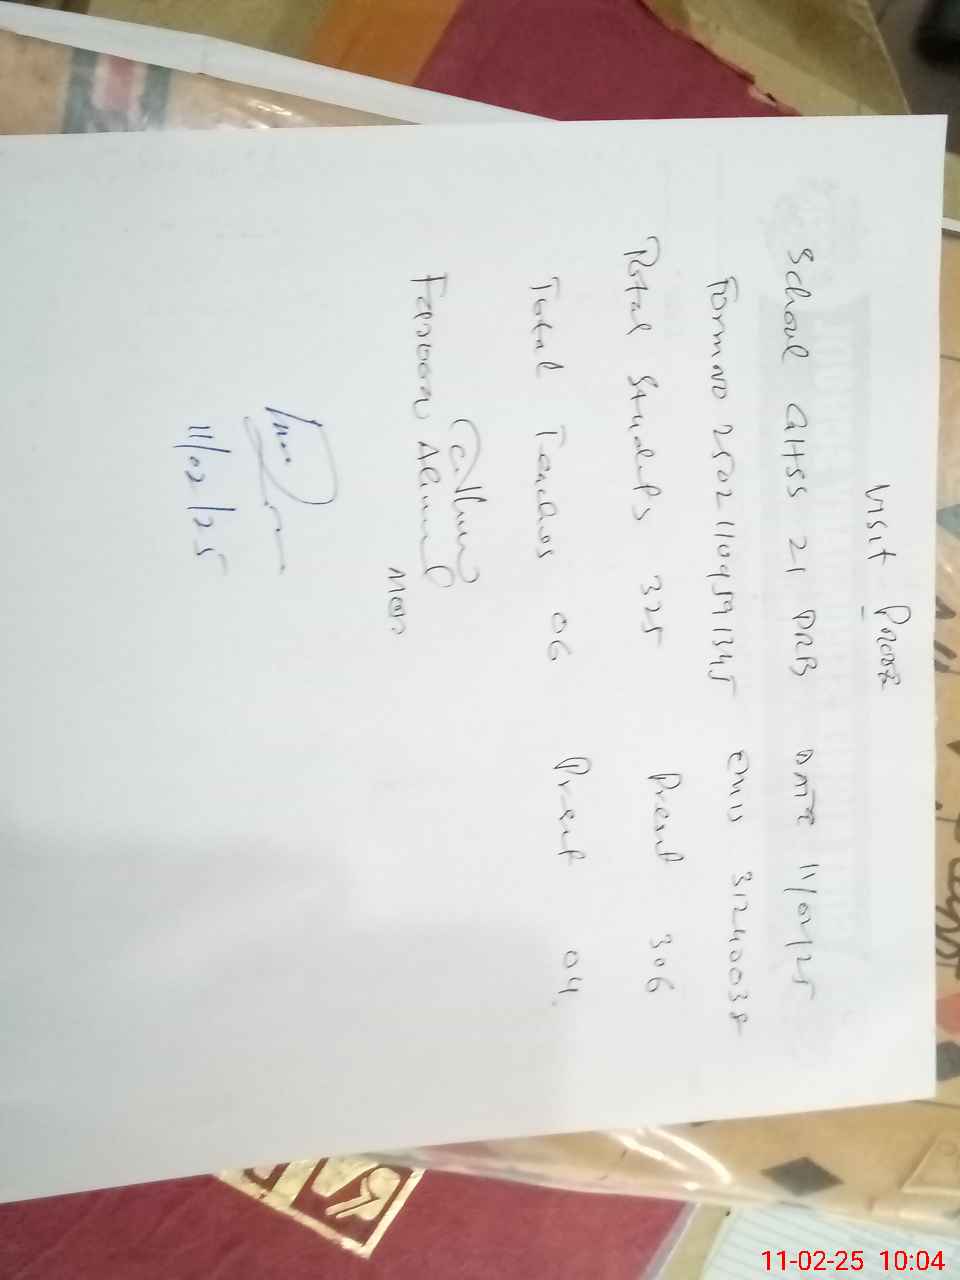 Visit Proof
School GHSS 21 DRB DATE 11/02/25
Form No 25021104591345 EMIS 31240038
Total Students 325 Present 306
Total Teachers 06 Present 04.
Farooq Ahmad
11/02/25
11-02-25 10:04